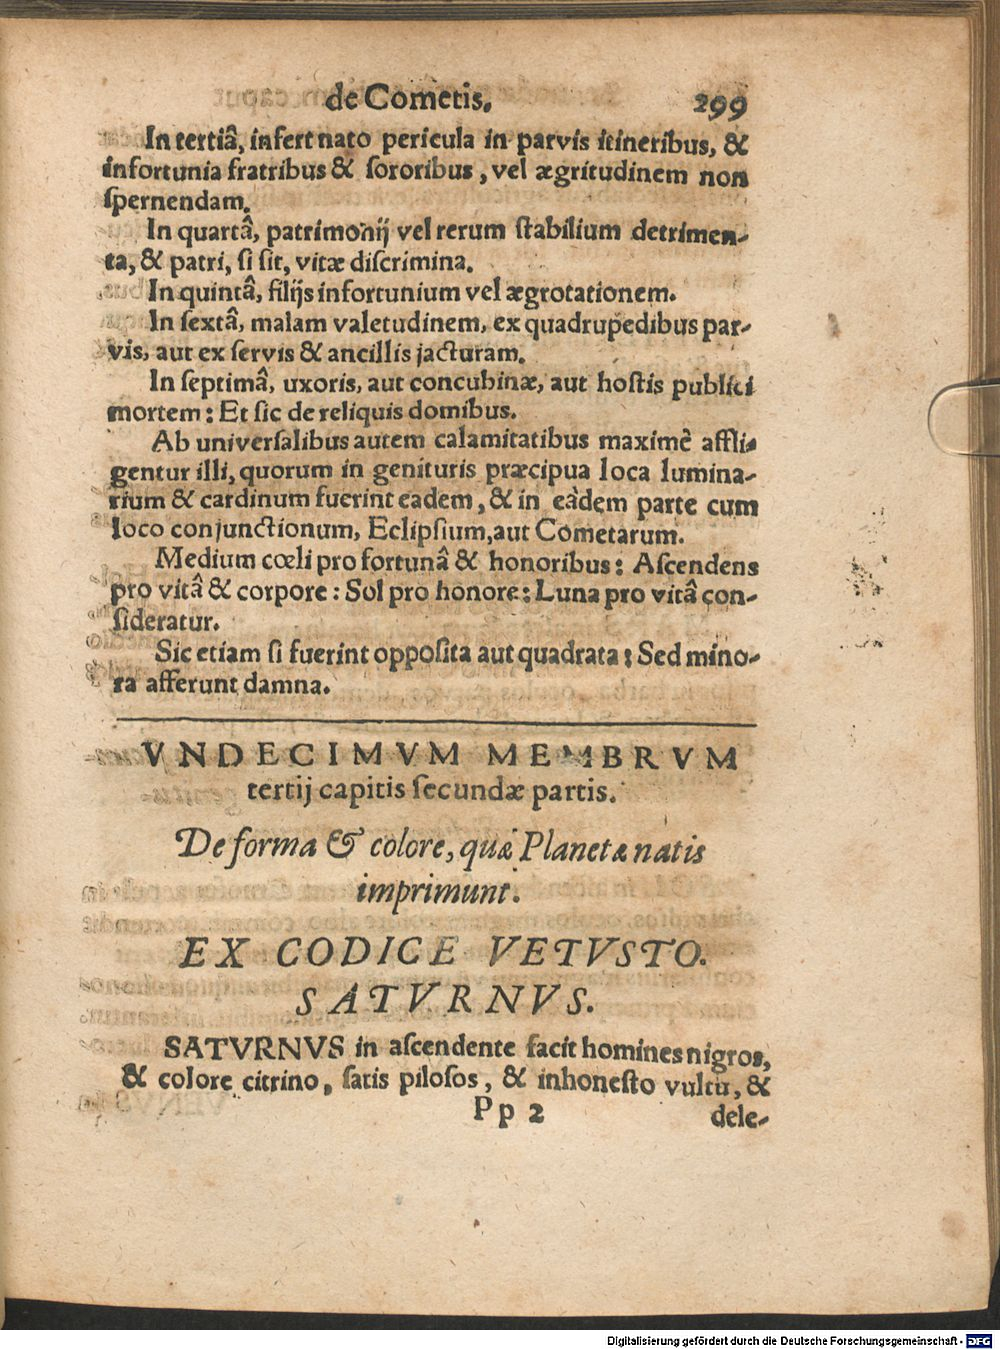 de Cometis. 299
In tertiâ, infert nato pericula in parvis itineribus, &
infortunia fratribus & ſororibus, vel ægritudinem non
ſpernendam.
In quartâ, patrimonij vel rerum ſtabilium detrimen-
ta, & patri, ſi ſit, vitæ diſcrimina.
In quintâ, filijs infortunium vel ægrotationem.
In ſextâ, malam valetudinem, ex quadrupedibus par-
vis, aut ex ſervis & ancillis jacturam.
In ſeptimâ, uxoris, aut concubinæ, aut hoſtis publici
mortem: Et ſic de reliquis domibus.
Ab univerſalibus autem calamitatibus maximè affli-
gentur illi, quorum in genituris præcipua loca lumina-
rium & cardinum fuerint eadem, & in eàdem parte cum
loco conjunctionum, Eclipſium, aut Cometarum.
Medium cœli pro fortunâ & honoribus: Aſcendens
pro vitâ & corpore: Sol pro honore: Luna pro vitâ con-
ſideratur.
Sic etiam ſi fuerint oppoſita aut quadrata: Sed mino-
ra afferunt damna.
VNDECIMVM MEMBRVM
tertij capitis ſecundæ partis.
De forma & colore, quæ Planetæ natis
imprimunt.
EX CODICE VETVSTO.
SATVRNVS.
SATVRNVS in aſcendente facit homines nigros,
& colore citrino, ſatis piloſos, & inhoneſto vultu, &
Pp 2 dele-
Digitalisierung gefördert durch die Deutsche Forschungsgemeinschaft - DFG